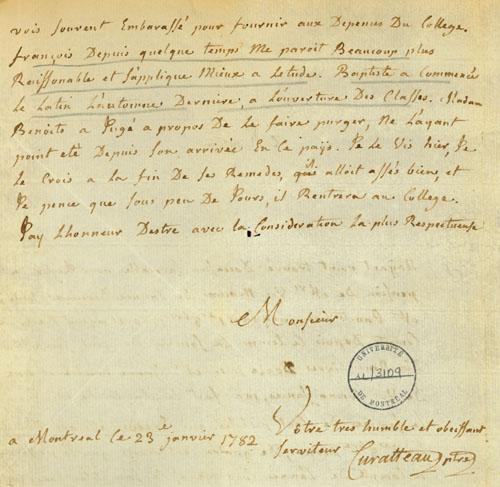 vois souvent Embarassé pour fournir aux Depenes Du College.
françois Depuis quelque temps Me paroit Beaucoup plus
Raissonable et s'applique Mieux a Letude. Baptiste a Commencé
Le Latin L'automne Derniere, a L'ouverture Des Classes. Madam
Benoits a Jugé a propos De Le faire purger, Ne L'ayant
point eté Depuis Son arrivée En Ce pays. Je Le Vis hier, Je
Le Crois a La fin De Ses Remedes, qu'il alloit assés bien, et
Je pence que Sous peu De Jours, il Rentrera au College.
J'ay Lhonneur Destre avec la Consideration La plus Respectueuse
Monsieur
UNIVERSITÉ
u/3109
DE MONTRÉAL
Vôtre tres humble et obeissant
a Montreal Ce 23e janvier 1782
Serviteur Curatteau ptre